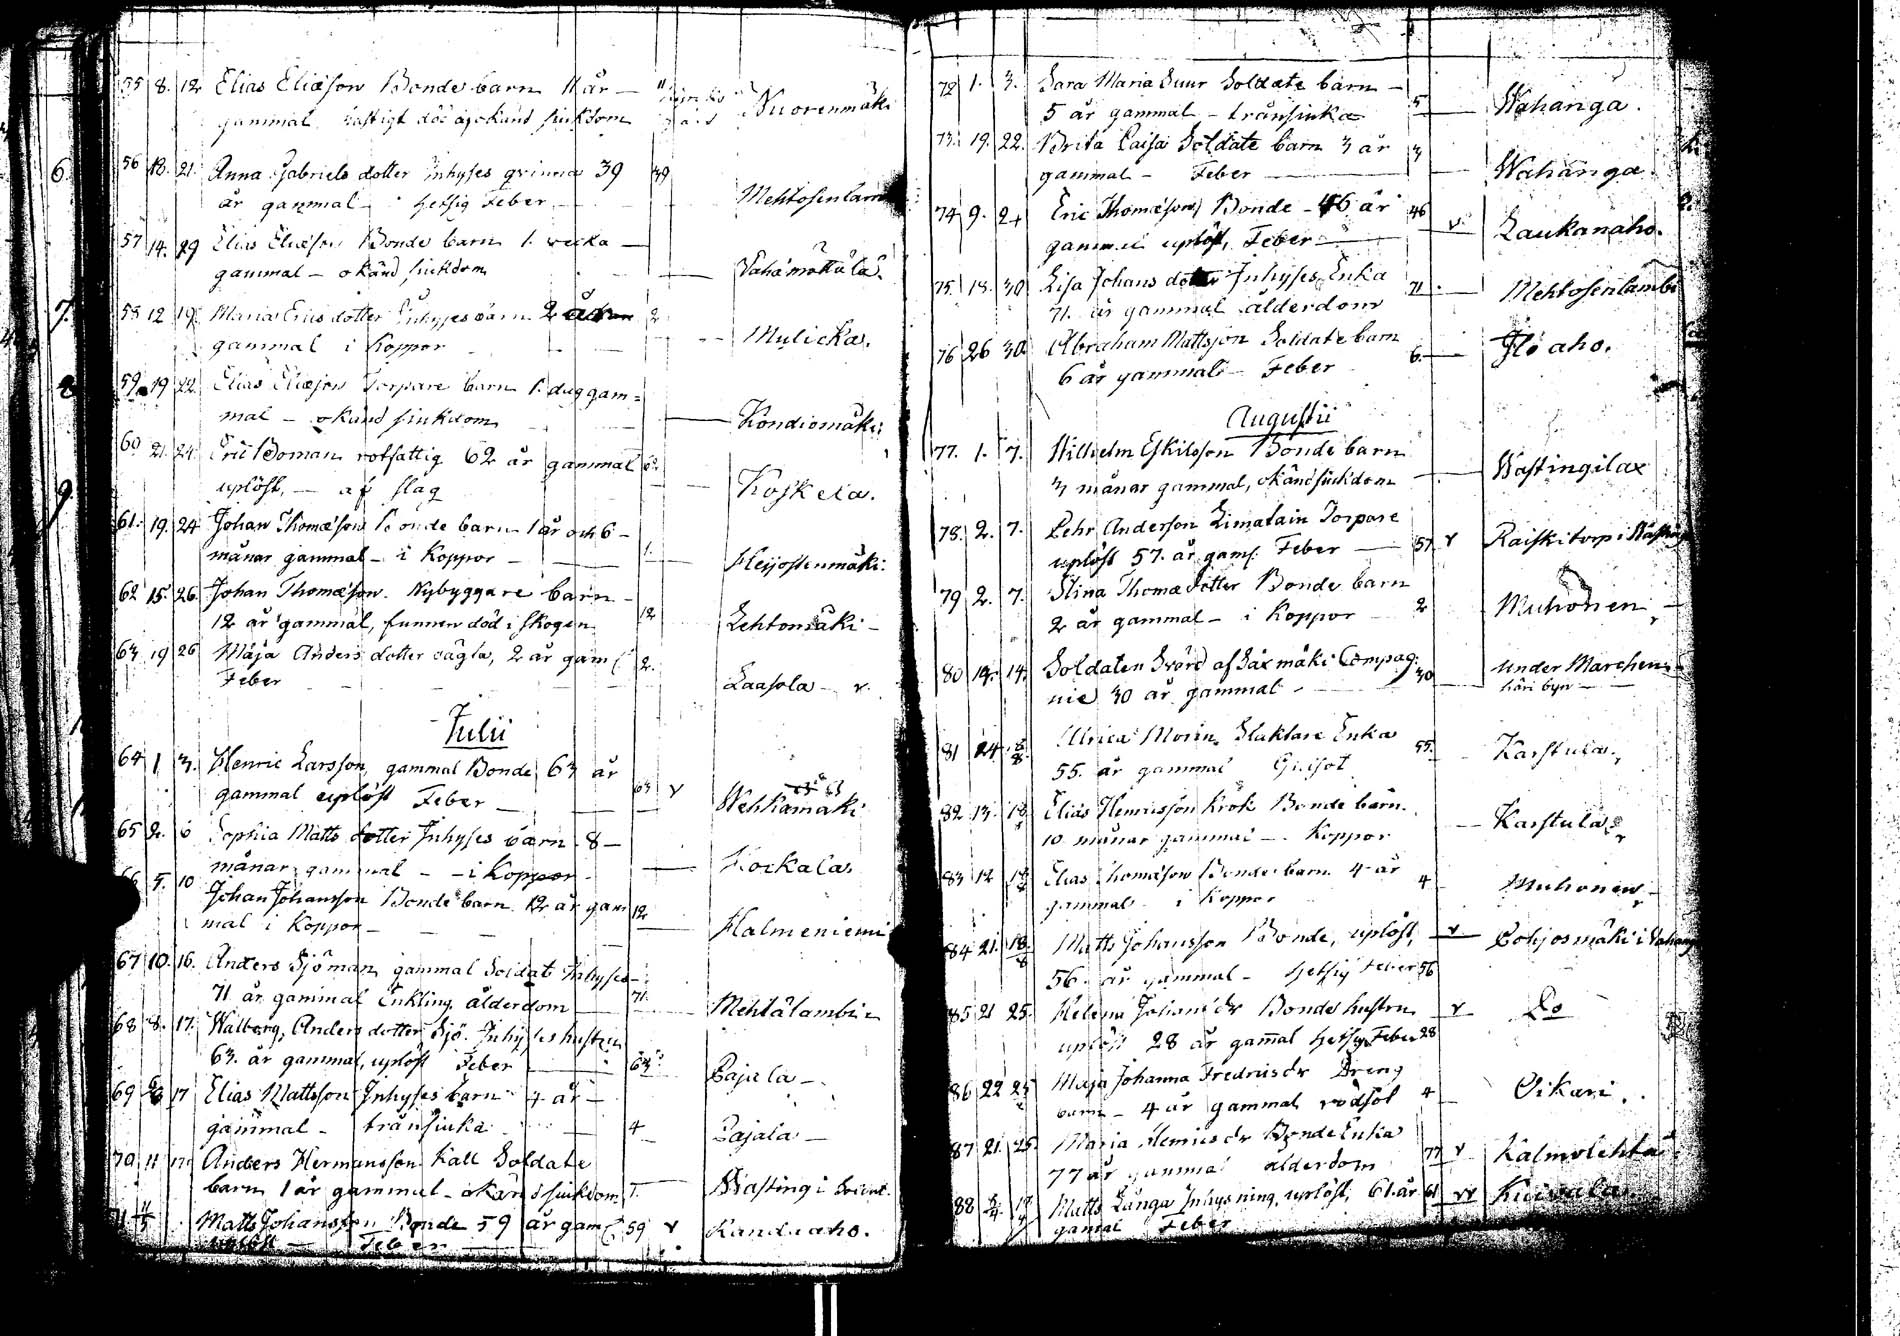 55 8. 12 Elias Eliæson Bonde barn 11 år — 11
gammal hastigt död af okänd siukdom Wuorenmäki
56 18. 21. Anna Gabriels dotter Inhyses qvinna 39 39
år gammal — hetsig Feber — Mehtosenlam
57 14. 29 Elias Eliæson Bonde barn 1. vecka —
gammal — okänd siukdom —
58 12 19. Maria Erics dotter Inhyses barn 2 2
gammal i Koppor — Mulicka.
59. 19 22 Elias Eliæson Torpare barn 1. dag gam=
mal — okänd siukdom — Kondiomäki
60 21. 24 Eric Boman rotfattig 62 år gammal
uplöst, — af slag — Koskela.
61. 19. 24 Johan Thomæson Bonde barn 1 år och 6 —
månar gammal — i Koppor — 1. Heijostenmäki.
62 15. 26. Johan Thomæson Nybyggare barn —
12 år gammal, funnen död i skogen 12 Lehtomäki —
63 19 26 Maja Anders dotter 2 år gam 2.
Feber — Laasola — v.
Julii
64 1 3. Henric Larsson, gammal Bonde 63 år
gammal uplöst Feber — 63 v Wehkamäki
65 2. 6 Sophia Matts dotter Inhyses barn 8 —
månar gammal — i Koppor — Kockala.
66 5. 10 Johan Johansson Bonde barn 12 år gam
mal i Koppor — 12 Halmeniemi
67 10. 16. Anders Sjöman gammal Soldat Inhyses —
71 år gammal Enkling ålderdom 71. Mehtälambi
68 8. 17. Walborg Anders dotter Sjö. Inhyses hustru
63. år gammal, uplöst Feber — 63. Pajala —
69 17 Elias Mattsson Inhyses barn 4 år —
gammal — trånsiuka — 4 Pajala —
70 11 17. Anders Hermansson Kall Soldate
barn 1 år gammal — okänd siukdom 1. Wastingi
71 Matts Johansson Bonde 59 år gam 59 v Kanduaho.
uplöst — Feber —
72 1. 3. Sara Maria Suur Soldate barn —
5 år gammal — trånsiuka 5 Wahanga.
73. 19. 22. Brita Caisa Soldate barn 3 år 3
gammal — Feber — Wahanga
74 9. 24 Eric Thomæson Bonde — 46 år 46 v.
gammal uplöst, Feber — Laukanaho.
75. 18. 30 Lisa Johans dotter Inhyses Enka
71. år gammal ålderdom 71 Mehtosenlambi
76 26 30 Abraham Mattsson Soldate barn
6 år gammal — Feber 6. — Ilo aho.
Augustii
77. 1. 7. Wilhelm Eskilsson Bonde barn
3 månar gammal, okänd siukdom — Wastingilax
78. 2. 7. Pehr Anderson Limatain Torpare
uplöst 57. år gam: Feber — 57 v Raiskitorp i
79 2. 7. Stina Thomædotter Bonde barn
2 år gammal — i Koppor 2 Muhonen —
80 14. 14. Soldaten Svärd af Saxmäki Compag:
nie 30 år gammal — 30 Under Marchen
häri byn —
81 24. Ulrica Morin Slaktare Enka
55. år gammal 55. Karstula.
82 13. 18 Elias Henricsson Krök Bonde barn.
10 månar gammal — Koppor — Karstula
83 12 18 Elias Thomæson Bonde barn 4 år 4
gammal i Koppor Muhonen —
84 21. 18/8 Matts Johansson Bonde, uplöst, v Pohjosmäki i Wahang
56. år gammal — hetsig Feber 56
85 21 25. Helena Johans dr Bonde hustru v Do
uplöst 28 år gamal hetsig Feber 28
86 22 25 Maja Johanna Fredrics dr Dreng
barn — 4 år gammal rödsot 4 — Oikari.
87 21. 25. Maria Henrics dr Bonde Enka
77 år gammal ålderdom 77 v Kalmolehto
88 Matts Långa Inhysning, uplöst, 61. år 61 vv
gamal Feber